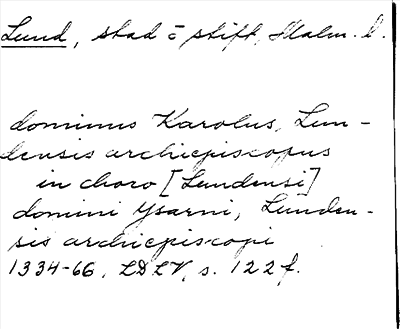 Lund, stad o stift, Malm. l.
dominus Karolus, Lun-
densis archiepiscopus
in choro [Lundensi]
domini Ysarni, Lunden-
sis archiepiscopi
1334-66, LDLV, s. 122f.